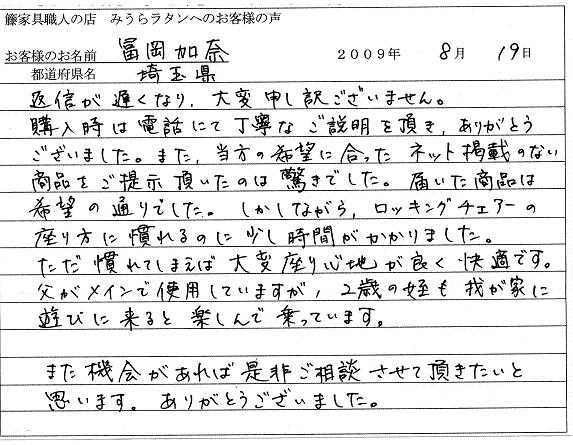 籐家具職人の店 みうらラタンへのお客様の声
お客様のお名前 冨岡加奈 2009年 8月 19日
都道府県名 埼玉県
返信が遅くなり、大変申し訳ございません。
購入時は電話にて丁寧なご説明を頂き、ありがとう
ございました。また、当方の希望に合ったネット掲載のない
商品をご提示頂いたのは驚きでした。届いた商品は
希望の通りでした。しかしながら、ロッキングチェアーの
座り方に慣れるのに少し時間がかかりました。
ただ慣れてしまえば大変座り心地が良く快適です。
父がメインで使用していますが、2歳の姪も我が家に
遊びに来ると楽しんで乗っています。
また機会があれば是非ご相談させて頂きたいと
思います。ありがとうございました。